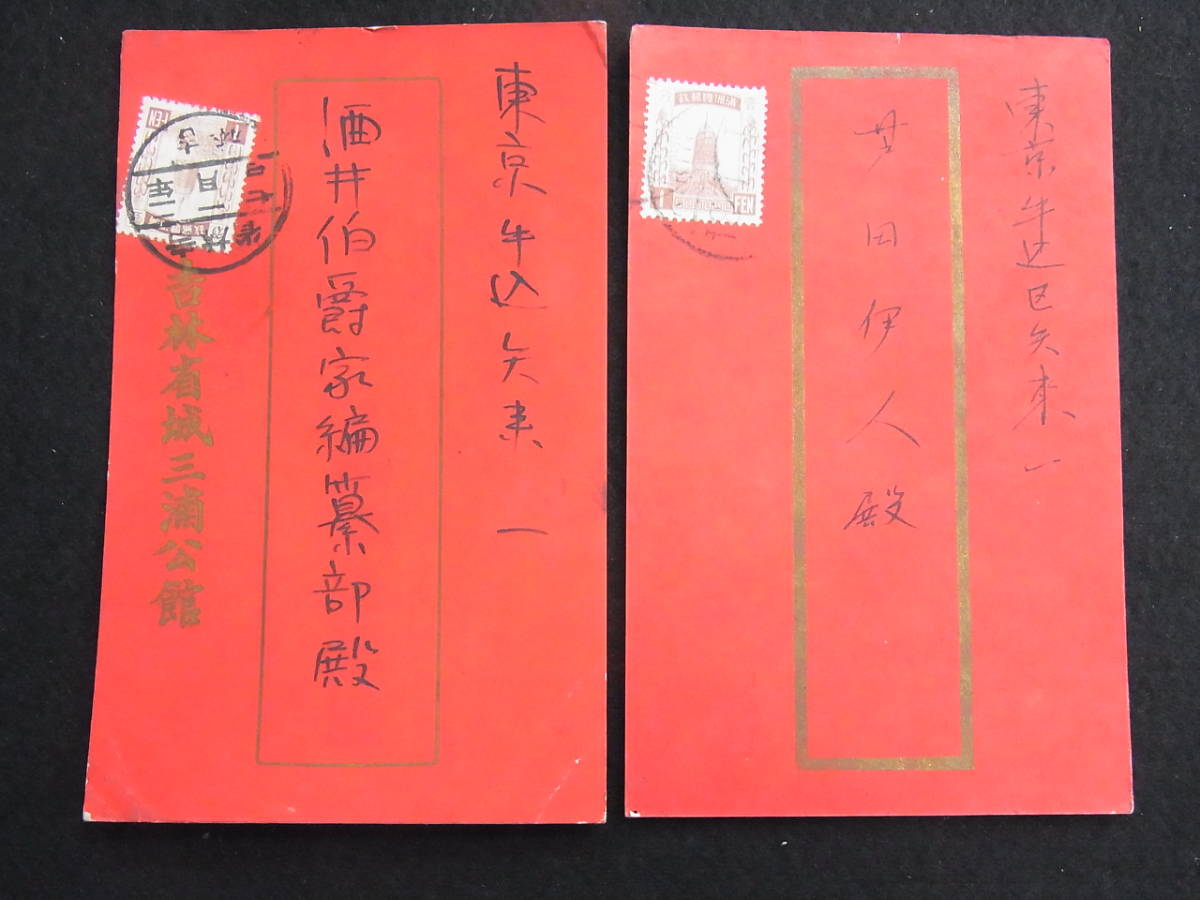 東京牛込矢来一
酒井伯爵家編纂部殿
吉林省城三浦公館
東京牛込区矢来一
芝田伊人殿
FEN
1 FEN